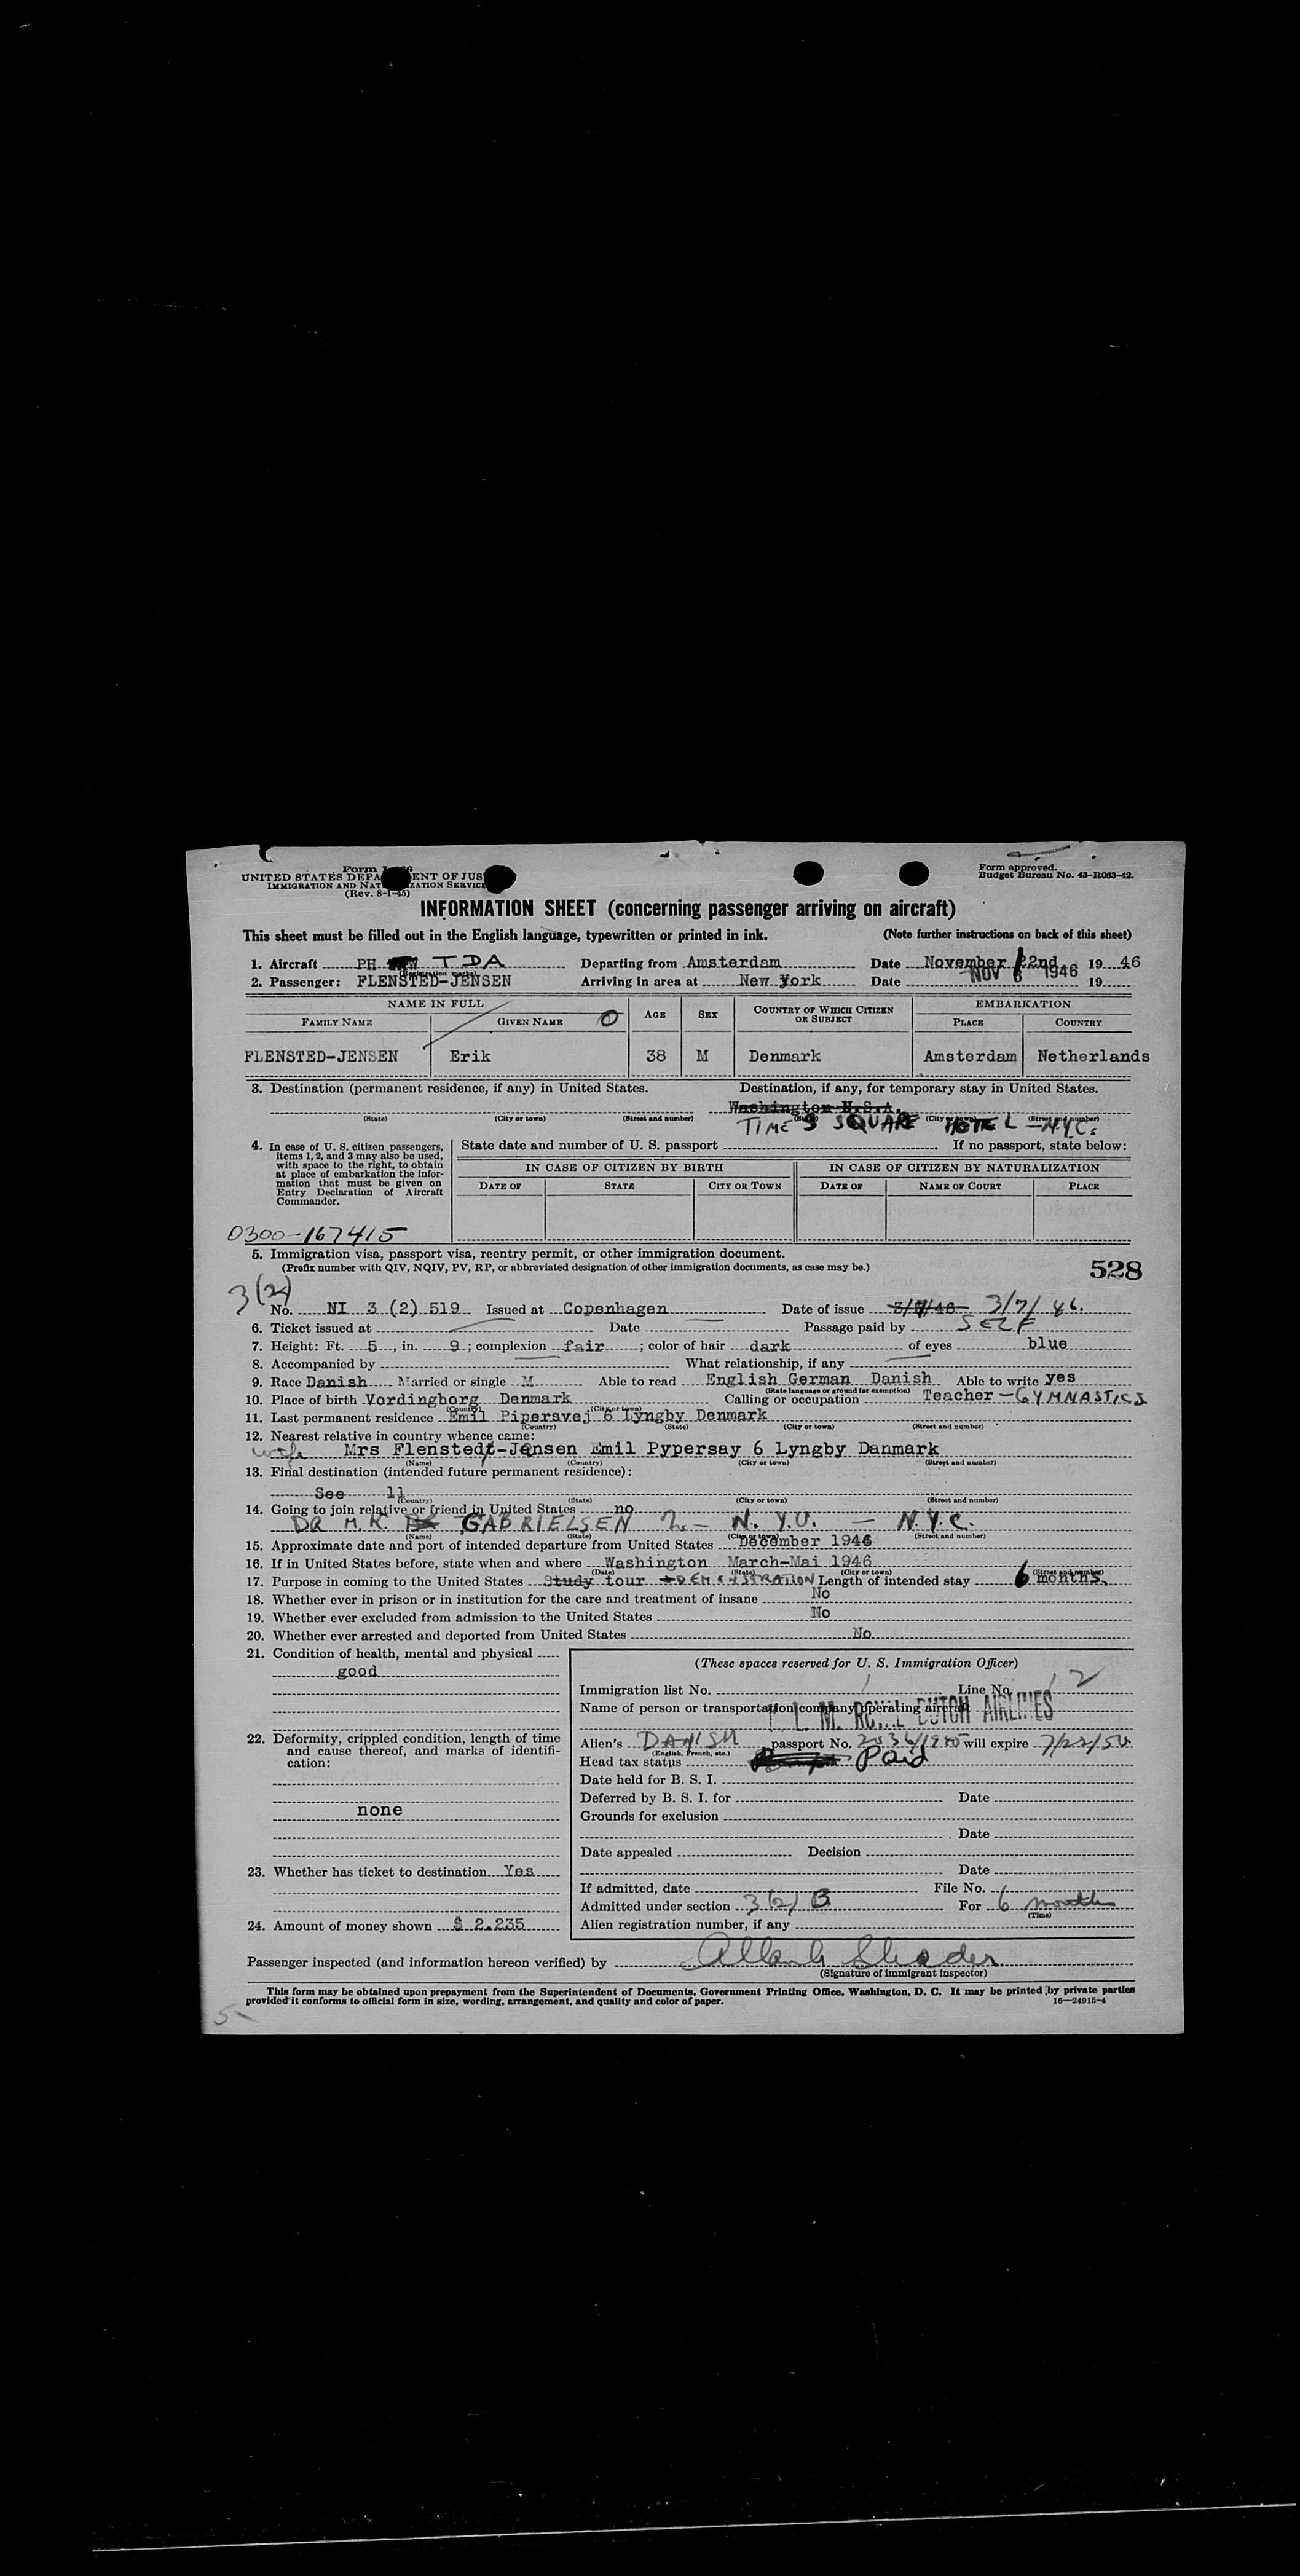 Form
UNITED STATES DEPA ENT OF JUS
IMMIGRATION AND NAT IZATION SERVICE
(Rev. 8-1-45)
Form approved.
Budget Bureau No. 43-R063-42.
INFORMATION SHEET (concerning passenger arriving on aircraft)
This sheet must be filled out in the English language, typewritten or printed in ink. (Note further instructions on back of this sheet)
1. Aircraft PH TDA Departing from Amsterdam Date November 22nd 19 46
(Registration marks)
2. Passenger: FLENSTED-JENSEN Arriving in area at New York Date NOV 6 1946 19
NAME IN FULL AGE SEX COUNTRY OF WHICH CITIZEN OR SUBJECT EMBARKATION
FAMILY NAME GIVEN NAME O PLACE COUNTRY
FLENSTED-JENSEN Erik 38 M Denmark Amsterdam Netherlands
3. Destination (permanent residence, if any) in United States. Destination, if any, for temporary stay in United States.
Washington U.S.A.
(State) (City or town) (Street and number) (State) (City or town) (Street and number)
TIMES SQUARE HOTEL - N.Y.C.
4. In case of U. S. citizen passengers, items 1, 2, and 3 may also be used, with space to the right, to obtain at place of embarkation the information that must be given on Entry Declaration of Aircraft Commander.
State date and number of U. S. passport If no passport, state below:
IN CASE OF CITIZEN BY BIRTH IN CASE OF CITIZEN BY NATURALIZATION
DATE OF STATE CITY OR TOWN DATE OF NAME OF COURT PLACE
0300-167415
5. Immigration visa, passport visa, reentry permit, or other immigration document.
(Prefix number with QIV, NQIV, PV, RP, or abbreviated designation of other immigration documents, as case may be.)
528
3(2)
No. NI 3 (2) 519 Issued at Copenhagen Date of issue 3/7/46 3/7/46.
6. Ticket issued at Date Passage paid by SELF
7. Height: Ft. 5, in. 9; complexion fair; color of hair dark of eyes blue
8. Accompanied by What relationship, if any
9. Race Danish Married or single M Able to read English German Danish Able to write yes
(State language or ground for exemption)
10. Place of birth Vordingborg Denmark Calling or occupation Teacher - GYMNASTICS
(Country) (City or town)
11. Last permanent residence Emil Pipersvej 6 Lyngby Denmark
(Country) (State) (City or town) (Street and number)
12. Nearest relative in country whence came:
wife Mrs Flenstedt-Jensen Emil Pypersay 6 Lyngby Danmark
(Name) (Country) (City or town) (Street and number)
13. Final destination (intended future permanent residence):
See 11
(Country) (State) (City or town) (Street and number)
14. Going to join relative or friend in United States no
DR M.K. GABRIELSEN - N.Y.U. - N.Y.C.
(Name) (State) (City or town) (Street and number)
15. Approximate date and port of intended departure from United States December 1946
16. If in United States before, state when and where Washington March-Mai 1946
(Date) (State) (City or town) (Street and number)
17. Purpose in coming to the United States Study tour DEMONSTRATION Length of intended stay 6 months.
18. Whether ever in prison or in institution for the care and treatment of insane No
19. Whether ever excluded from admission to the United States No
20. Whether ever arrested and deported from United States No
21. Condition of health, mental and physical
good
22. Deformity, crippled condition, length of time and cause thereof, and marks of identification:
none
23. Whether has ticket to destination Yes
24. Amount of money shown $ 2.235
(These spaces reserved for U. S. Immigration Officer)
Immigration list No. 1 Line No. 12
Name of person or transportation company operating aircraft
K L M. ROYAL DUTCH AIRLINES
Alien's DANISH passport No. will expire
(English, French, etc.)
Head tax status Paid
Date held for B. S. I.
Deferred by B. S. I. for Date
Grounds for exclusion
Date
Date appealed Decision
Date
If admitted, date File No.
Admitted under section 3(2) B For 6 months
(Time)
Alien registration number, if any
Passenger inspected (and information hereon verified) by
(Signature of immigrant inspector)
This form may be obtained upon prepayment from the Superintendent of Documents, Government Printing Office, Washington, D. C. It may be printed by private parties
provided it conforms to official form in size, wording, arrangement, and quality and color of paper. 16—24915-4
5